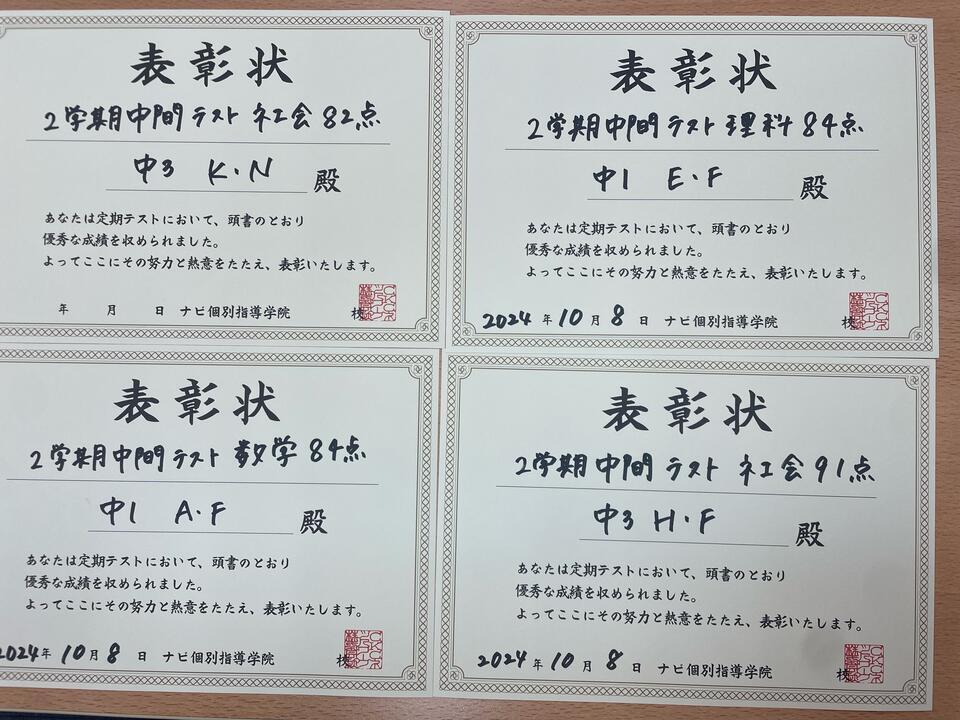 表彰状
2学期中間テスト 社会 82点
中3 K.N 殿
あなたは定期テストにおいて、頭書のとおり
優秀な成績を収められました。
よってここにその努力と熱意をたたえ、表彰いたします。
年 月 日 ナビ個別指導学院 校
表彰状
2学期中間テスト 理科 84点
中1 E.F 殿
あなたは定期テストにおいて、頭書のとおり
優秀な成績を収められました。
よってここにその努力と熱意をたたえ、表彰いたします。
2024年10月8日 ナビ個別指導学院 校
表彰状
2学期中間テスト 数学 84点
中1 A.F 殿
あなたは定期テストにおいて、頭書のとおり
優秀な成績を収められました。
よってここにその努力と熱意をたたえ、表彰いたします。
2024年10月8日 ナビ個別指導学院 校
表彰状
2学期中間テスト 社会 91点
中3 H.F 殿
あなたは定期テストにおいて、頭書のとおり
優秀な成績を収められました。
よってここにその努力と熱意をたたえ、表彰いたします。
2024年10月8日 ナビ個別指導学院 校